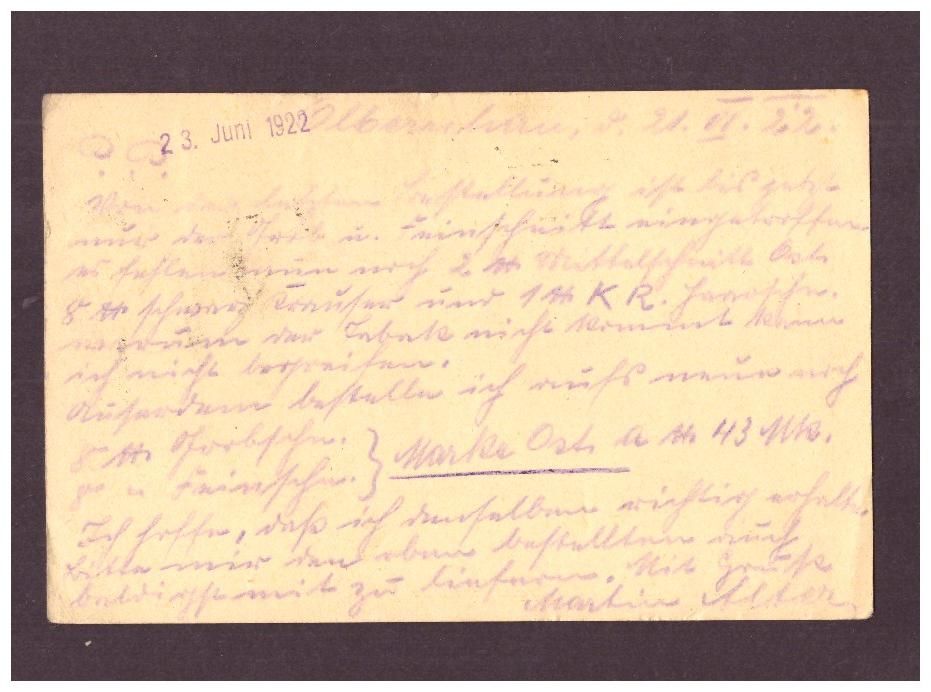 23. Juni 1922
Olbernhau, d. 21. VI. 22.
P. P.
Von der letzten Bestellung ist bis jetzt
nur der Grob u. Feinschnitt eingetroffen
es fehlen nun noch 2 ℔ Mittelschnitt Ost.
8 ℔ schwarz Krauser und 1 ℔ K R. Haarschn.
warum der Tabak nicht kommt kann
ich nicht begreifen.
Außerdem bestelle ich aufs neue noch
8 ℔ Grobschn.
8 " Feinschn. } Marke Ost. a ℔ 43 Mk.
Ich hoffe, daß ich denselben richtig erhalte.
bitte mir den oben bestellten auch
baldigst mit zu liefern. Mit Gruß
Martin Alter